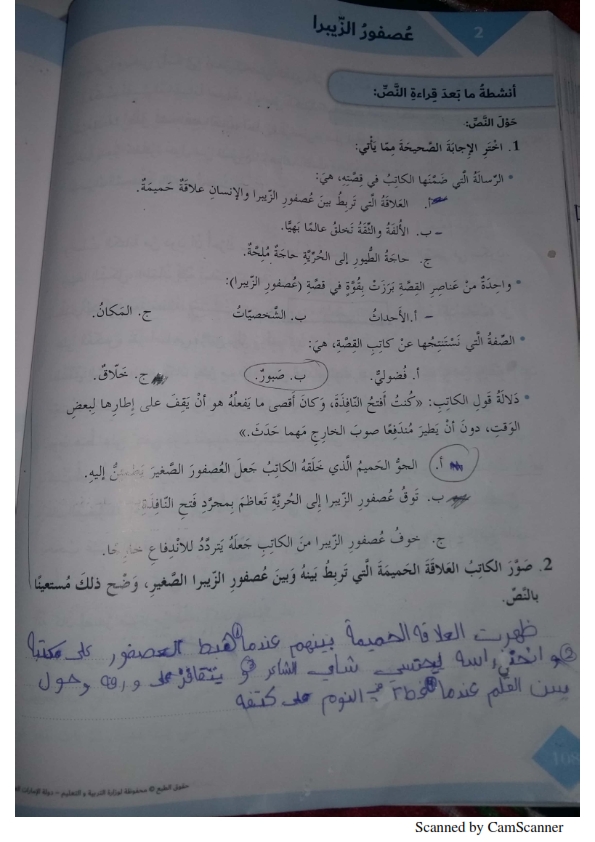 2
عُصفورُ الزّيبرا
أنشطةُ ما بَعدَ قِراءةِ النَّصِّ:
حَوْلَ النَّصِّ:
1. اخْتَرِ الإجابَةَ الصَّحيحَةَ مِمّا يَأْتي:
• الرِّسالةُ الَّتي ضَمَّنَها الكاتِبُ في قِصَّتِهِ، هيَ:
أ. العَلاقَةُ الَّتي تَربِطُ بينَ عُصفورِ الزّيبرا والإنسانِ علاقَةٌ حَميمَةٌ.
– ب. الأُلفَةُ والثِّقَةُ تَخلقُ عالمًا بَهيًّا.
ج. حاجَةُ الطُّيورِ إلى الحُرِّيَّةِ حاجَةٌ مُلِحَّةٌ.
• واحِدَةٌ منْ عَناصِرِ القِصَّةِ بَرَزَتْ بِقُوَّةٍ في قصَّةِ (عُصفورِ الزّيبرا):
– أ.الأَحداثُ ب. الشَّخصيّاتُ ج. المَكانُ.
• الصِّفةُ الَّتي نَسْتَنتِجُها عنْ كاتِبِ القِصَّةِ، هيَ:
أ. فُضوليٌّ. ب. صَبورٌ. ج. خَلّاقٌ.
• دَلالةُ قَولِ الكاتِبِ: «كُنتُ أَفتحُ النّافِذَةَ، وَكانَ أَقصى ما يَفعلُهُ هو أنْ يَقِفَ على إطارِها لِبعضِ
الوَقتِ، دونَ أنْ يَطيرَ مُندَفِعًا صوبَ الخارِجِ مَهما حَدَثَ.»
أ. الجوُّ الحَميمُ الَّذي خَلَقَهُ الكاتبُ جَعلَ العُصفورَ الصَّغيرَ يَطمئنُّ إليهِ.
ب. تَوقُ عُصفورِ الزّيبرا إلى الحُريَّةِ تَعاظَمَ بِمجرَّدِ فَتحِ النّافِذَةِ.
ج. خوفُ عُصفورِ الزّيبرا منَ الكاتِبِ جَعلَهُ يَتردَّدُ للانْدِفاعِ خارِجًا.
2. صَوّرَ الكاتِبُ العَلاقَةَ الحَميمَةَ الَّتي تَربِطُ بَينَهُ وَبينَ عُصفورِ الزّيبرا الصَّغيرِ، وَضِّح ذلكَ مُستعينًا
بالنَّصّ.
ظهرت العلاقة الحميمة بينهم عندما هبط العصفور على مكتبة
و انحنى راسه ليحتسي شاي الشاعر و يتقافز على ورقه وحول
سن القلم عندما النوم على كتفه
108
حقوق الطبع © محفوظة لوزارة التربية و التعليم – دولة الإمارات
Scanned by CamScanner